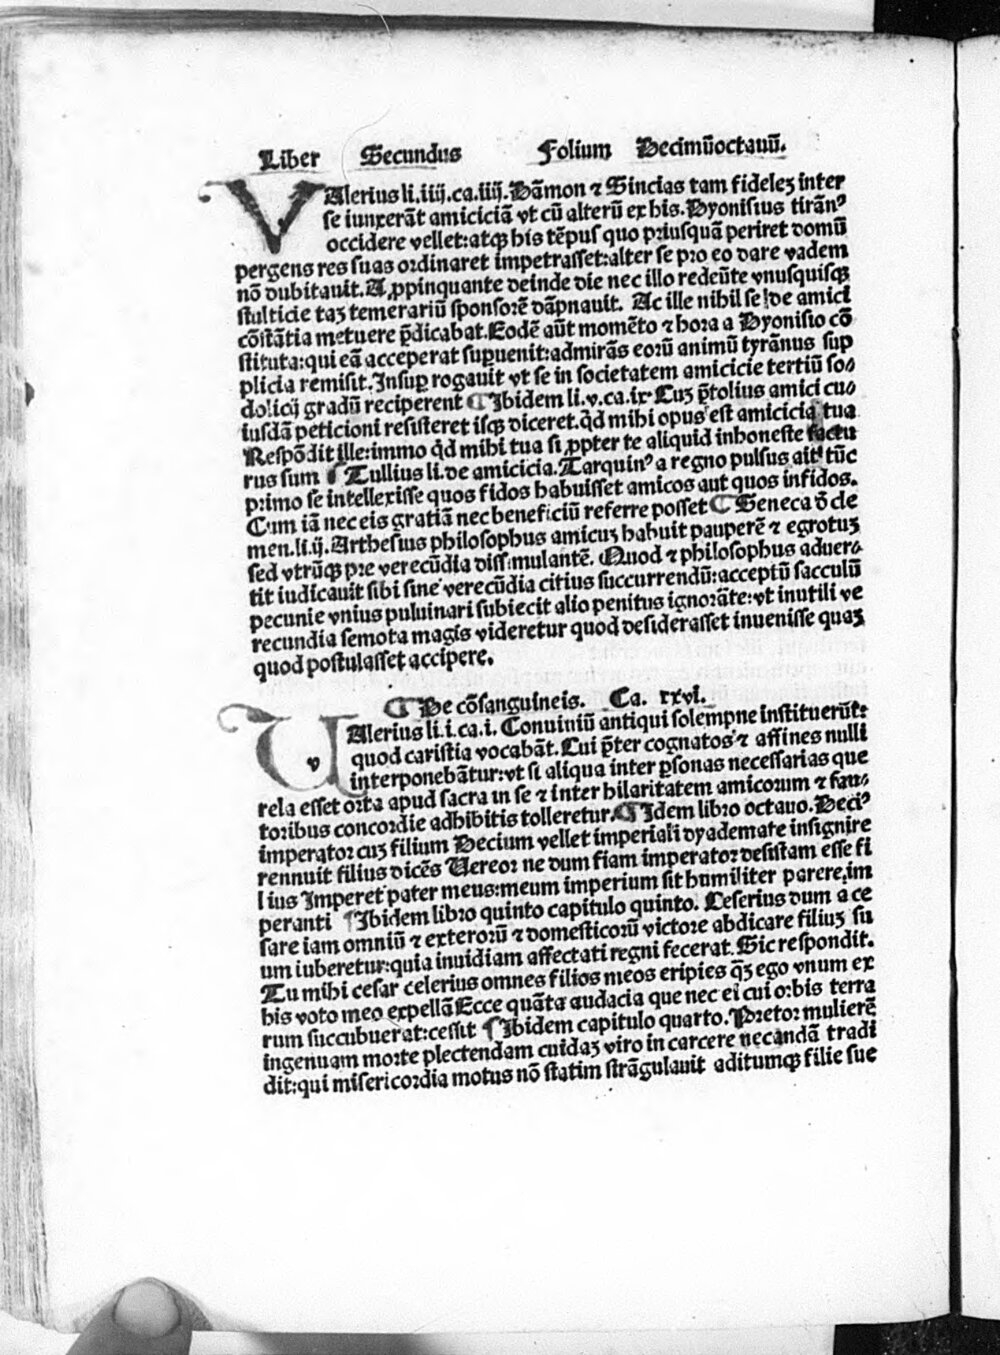 Liber Secundus Folium Decimũoctauũ.
VAlerius li.iiij.ca.iiij.Dãmon ⁊ Sincias tam fideleʒ inter
se iunxerãt amiciciã vt cũ alterũ ex his.Dyonisius tirãnꝰ
occidere vellet:atqꝫ his tẽpus quo priusquã periret domũ
pergens res suas ordinaret impetrasset:alter se pro eo dare vadem
nõ dubitauit.Appinquante deinde die nec illo redeũte vnusquisqꝫ
stulticie taʒ temerariũ sponsorẽ dãpnauit. Ac ille nihil se de amici
cõstãtia metuere p̃dicabat.Eodẽ aũt momẽto ⁊ hora a Dyonisio cõ
stituta:qui eã acceperat suꝑuenit:admirãs eorũ animũ tyrãnus sup
plicia remisit.Insuꝑ rogauit vt se in societatem amicicie tertiũ so⸗
dolicij gradũ reciperent ¶ Ibidem li.v.ca.ix. Cuʒ p̃tolius amici cu⸗
iusdã peticioni resisteret isqꝫ diceret.q̃d mihi opus est amicicia tua
Respõdit ille:immo q̃d mihi tua si ꝓpter te aliquid inhoneste factu
rus sum ¶ Tullius li.de amicicia.Tarquinꝰ a regno pulsus ait tũc
primo se intellexisse quos fidos habuisset amicos aut quos infidos.
Cum iã nec eis gratiã nec beneficiũ referre posset ¶ Seneca õ cle
men.li.ij.Arthesius philosophus amicuʒ habuit pauperẽ ⁊ egrotuʒ
sed vtrũqꝫ pre verecũdia dissimulantẽ. Quod ⁊ philosophus aduer⸗
tit iudicauit sibi sine verecũdia citius succurrendũ:acceptũ sacculũ
pecunie vnius puluinari subiecit alio penitus ignorãte:vt inutili ve
recundia semota magis videretur quod desiderasset inuenisse quaʒ
quod postulasset accipere.
¶ De cõsanguineis. Ca. xxvi.
VAlerius li.i.ca.i. Conuiniũ antiqui solempne instituerũt:
quod caristia vocabãt.Cui p̃ter cognatos ⁊ affines nulli
interponebãtur:vt si aliqua inter ꝑsonas necessarias que
rela esset orta apud sacra in se ⁊ inter hilaritatem amicorum ⁊ fau⸗
toribus concordie adhibitis tolleretur.¶ Idem libro octauo.Deciꝰ
imperator cuʒ filium Decium vellet imperiali dyademate insignire
rennuit filius dicẽs Vereor ne dum fiam imperator desistam esse fi
lius Imperet pater meus:meum imperium sit humiliter parere im
peranti ¶ Ibidem libro quinto capitulo quinto. Ceserius dum a ce
sare iam omniũ ⁊ exterorũ ⁊ domesticorũ victore abdicare filiuʒ su
um iuberetur:quia inuidiam affectati regni fecerat.Sic respondit.
Tu mihi cesar celerius omnes filios meos eripies q̃ʒ ego vnum ex
his voto meo expellã Ecce quãta audacia que nec ei cui orbis terra
rum succubuerat:cessit ¶ Ibidem capitulo quarto.Pretor mulierẽ
ingenuam morte plectendam cuidaʒ viro in carcere necandã tradi
dit:qui misericordia motus nõ statim strãgulauit aditumqꝫ filie sue